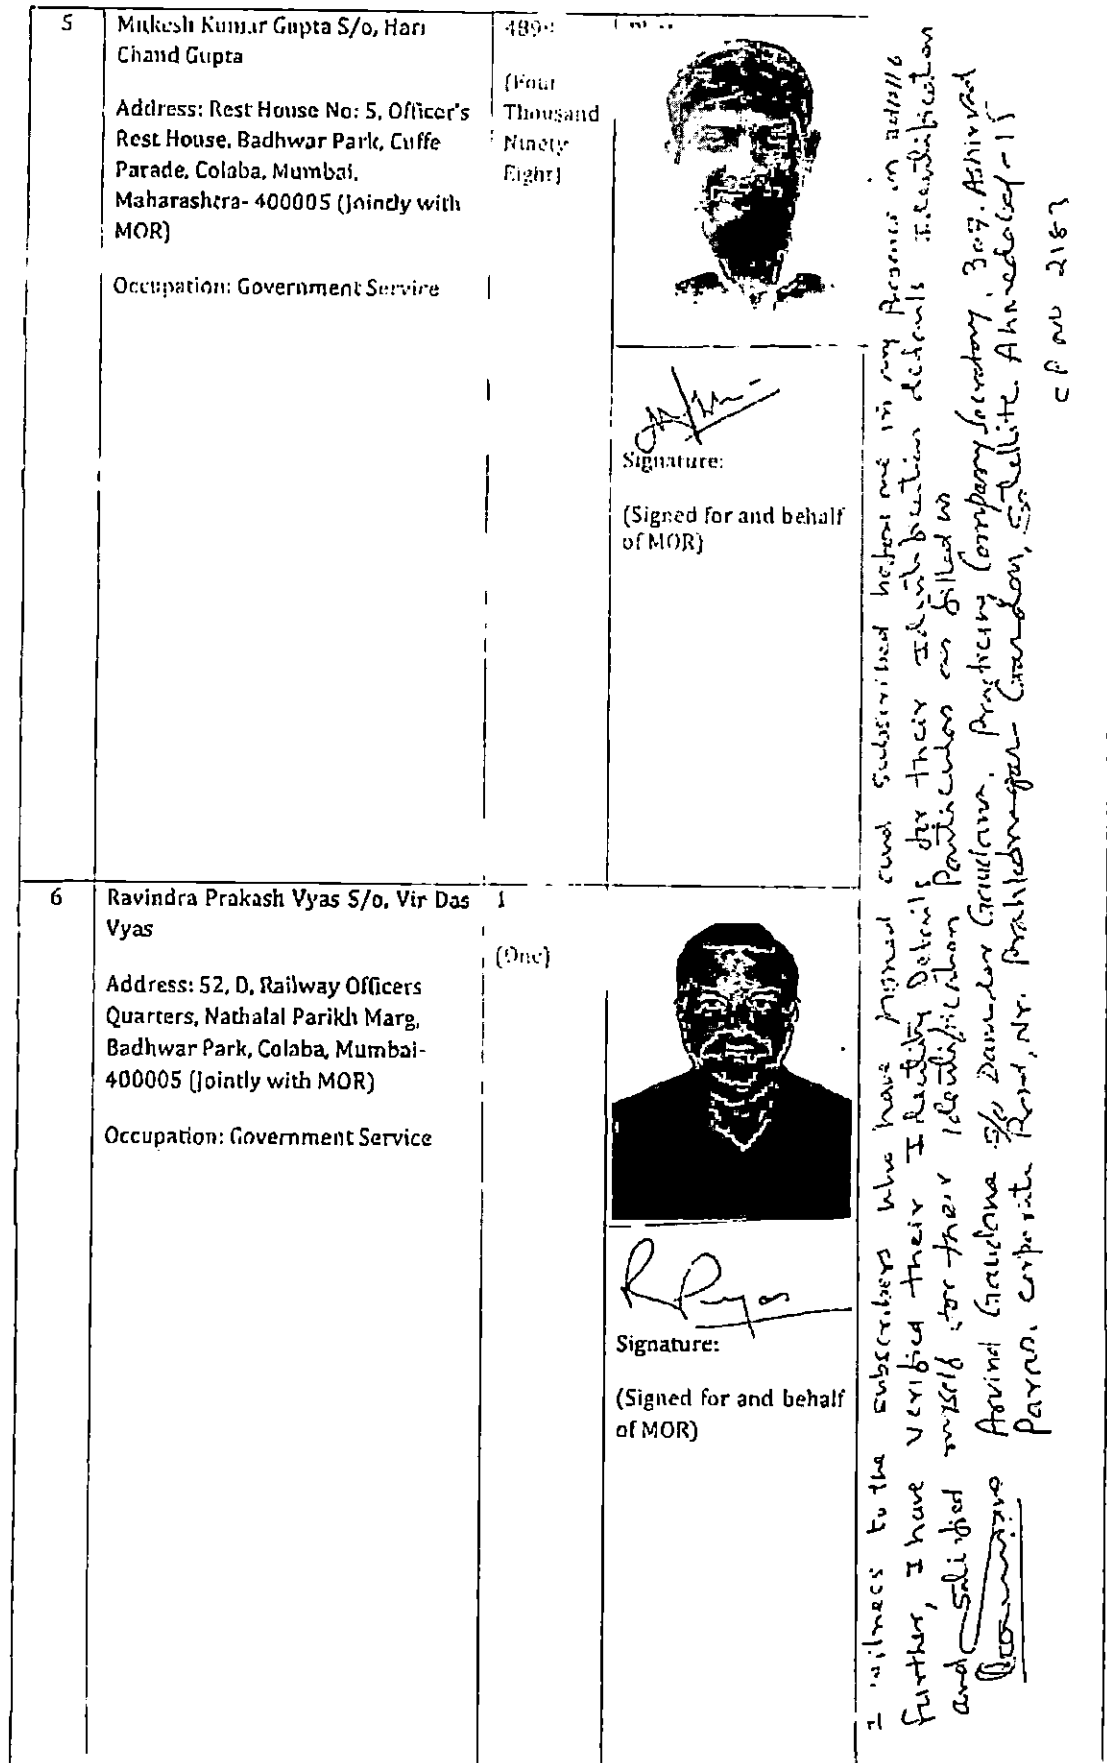 5
Mukesh Kumar Gupta S/o, Hari
Chand Gupta
Address: Rest House No: 5, Officer's
Rest House, Badhwar Park, Cuffe
Parade, Colaba, Mumbai,
Maharashtra- 400005 (Jointly with
MOR)
Occupation: Government Service
(Four
Thousand
Ninety
Eight)
Signature:
(Signed for and behalf
of MOR)
6
Ravindra Prakash Vyas S/o, Vir Das
Vyas
Address: 52, D, Railway Officers
Quarters, Nathalal Parikh Marg,
Badhwar Park, Colaba, Mumbai-
400005 (Jointly with MOR)
Occupation: Government Service
1
(One)
Signature:
(Signed for and behalf
of MOR)
I witness to the subscribers who have signed and subscribed before me in my presence in
further, I have verified their Identity Details for their Identification details identification
and satisfied myself for their identification Particulars as filled in
Arvind Gaudana S/o Damodar Gaudana, Practicing Company Secretary, 307, Ashirvad
Paras, corporate Road, Nr. Prahladnagar Garden, Satellite Ahmedabad-15
CP NO 2183